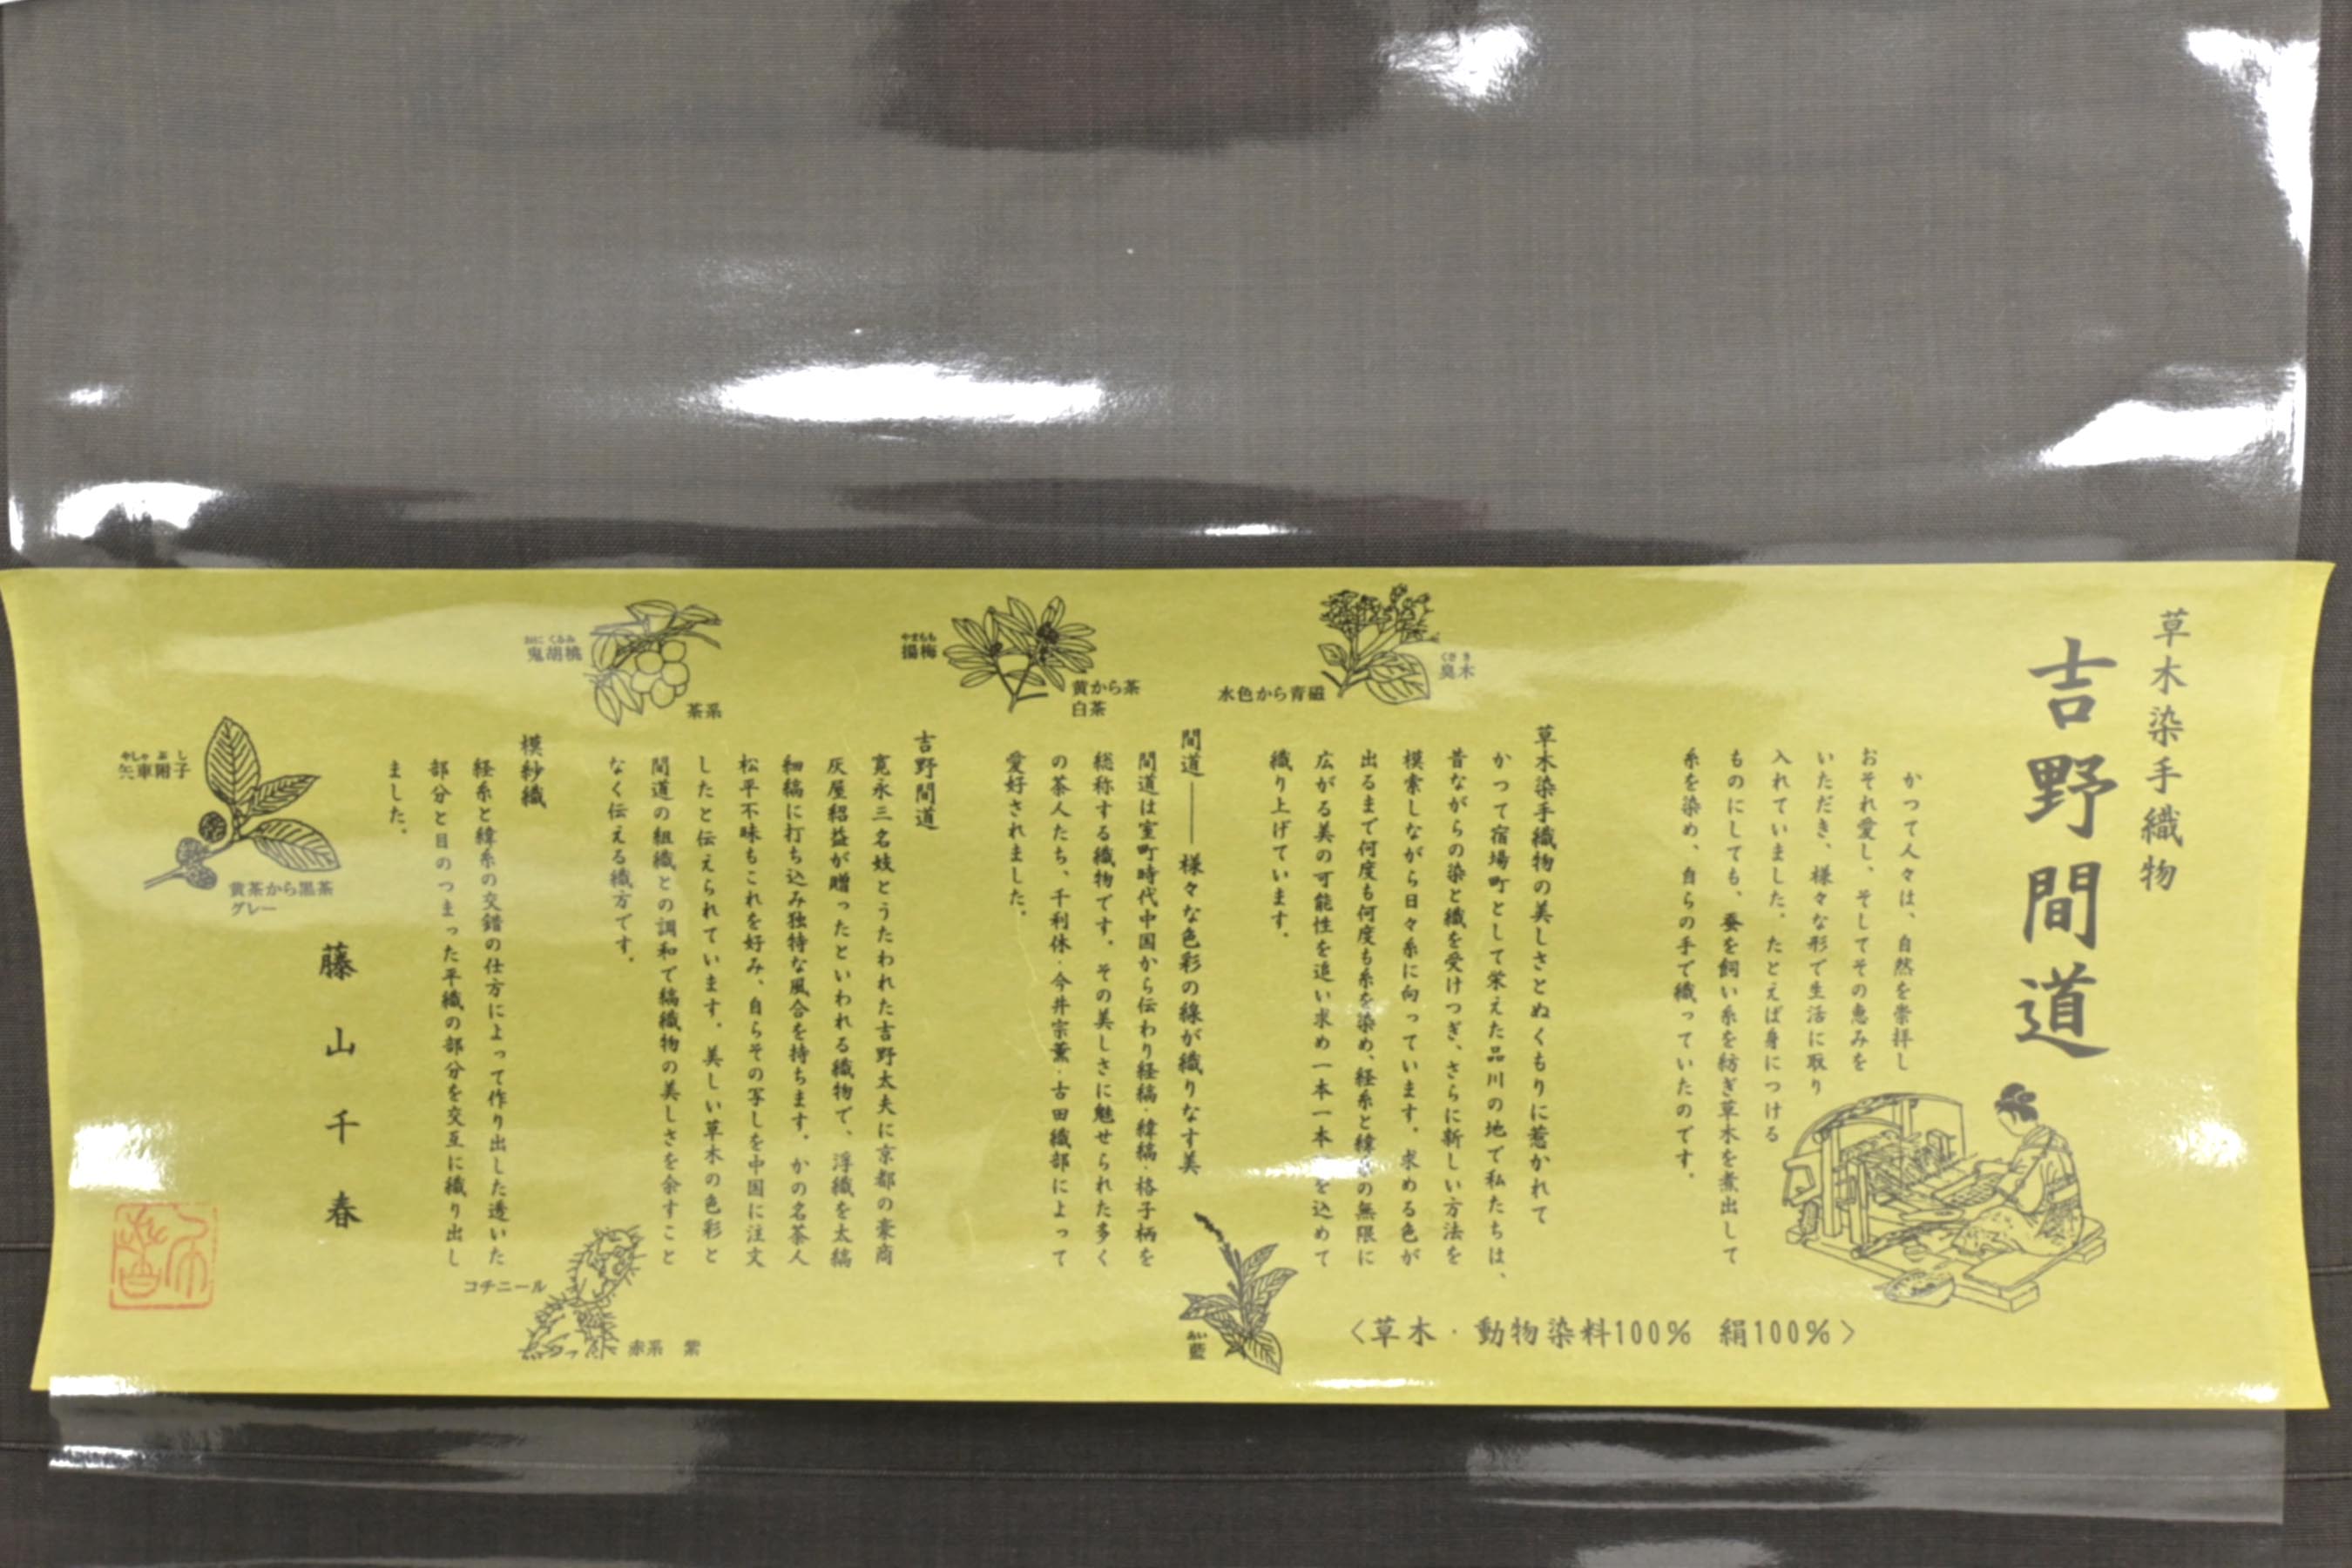 草木染手織物
吉野間道
かつて人々は、自然を崇拝し
おそれ愛し、そしてその恵みを
いただき、様々な形で生活に取り
入れていました。たとえば身につける
ものにしても、蚕を飼い糸を紡ぎ草木を煮出して
糸を染め、自らの手で織っていたのです。
〈草木・動物染料100% 絹100%〉
草木染手織物の美しさとぬくもりに惹かれて
かつて宿場町として栄えた品川の地で私たちは、
昔ながらの染と織を受けつぎ、さらに新しい方法を
模索しながら日々糸に向っています。求める色が
出るまで何度も何度も糸を染め、経糸と緯の無限に
広がる美の可能性を追い求め一本一本を込めて
織り上げています。
くさぎ
臭木
水色から青磁
間道――様々な色彩の線が織りなす美
間道は室町時代中国から伝わり経縞・緯縞・格子柄を
総称する織物です。その美しさに魅せられた多く
の茶人たち、千利休・今井宗薫・古田織部によって
愛好されました。
あい
藍
やまもも
揚梅
黄から茶
白茶
吉野間道
寛永三名妓とうたわれた吉野太夫に京都の豪商
灰屋紹益が贈ったといわれる織物で、浮織を太縞
細縞に打ち込み独特な風合を持ちます。かの名茶人
松平不昧もこれを好み、自らその写しを中国に注文
したと伝えられています。美しい草木の色彩と
間道の組織との調和で縞織物の美しさを余すこと
なく伝える織方です。
おにくるみ
鬼胡桃
茶系
模紗織
経糸と緯糸の交錯の仕方によって作り出した透いた
部分と目のつまった平織の部分を交互に織り出し
ました。
コチニール
赤系 紫
やしゃぶし
矢車附子
黄茶から黒茶
グレー
藤山千春